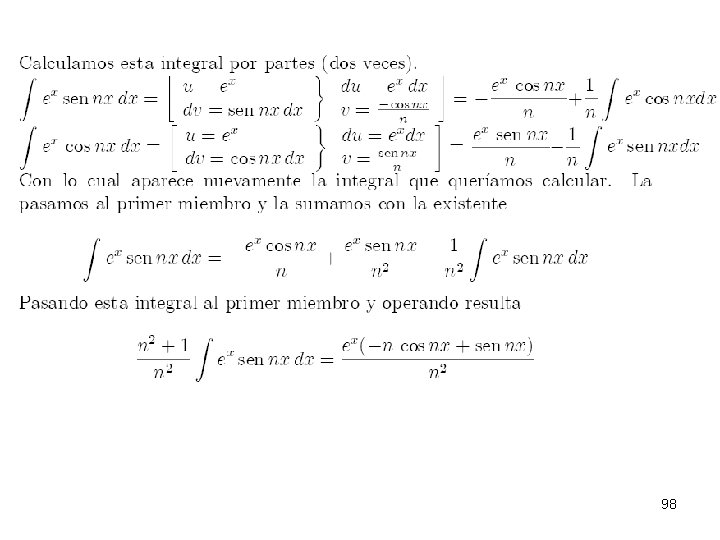 Calculamos esta integral por partes (dos veces).
∫ eˣ sen nx dx = [ u eˣ } du eˣ dx ] = − eˣ cos nx / n + 1/n ∫ eˣ cos nxdx
dv = sen nx dx v = −cos nx / n
∫ eˣ cos nx dx = [ u = eˣ } du = eˣdx ] = eˣ sen nx / n − 1/n ∫ eˣ sen nxdx
dv = cos nx dx v = sen nx / n
Con lo cual aparece nuevamente la integral que queríamos calcular. La
pasamos al primer miembro y la sumamos con la existente
∫ eˣ sen nx dx = eˣ cos nx / n + eˣ sen nx / n² 1 / n² ∫ eˣ sen nx dx
Pasando esta integral al primer miembro y operando resulta
n² + 1 / n² ∫ eˣ sen nx dx = eˣ(−n cos nx + sen nx) / n²
98